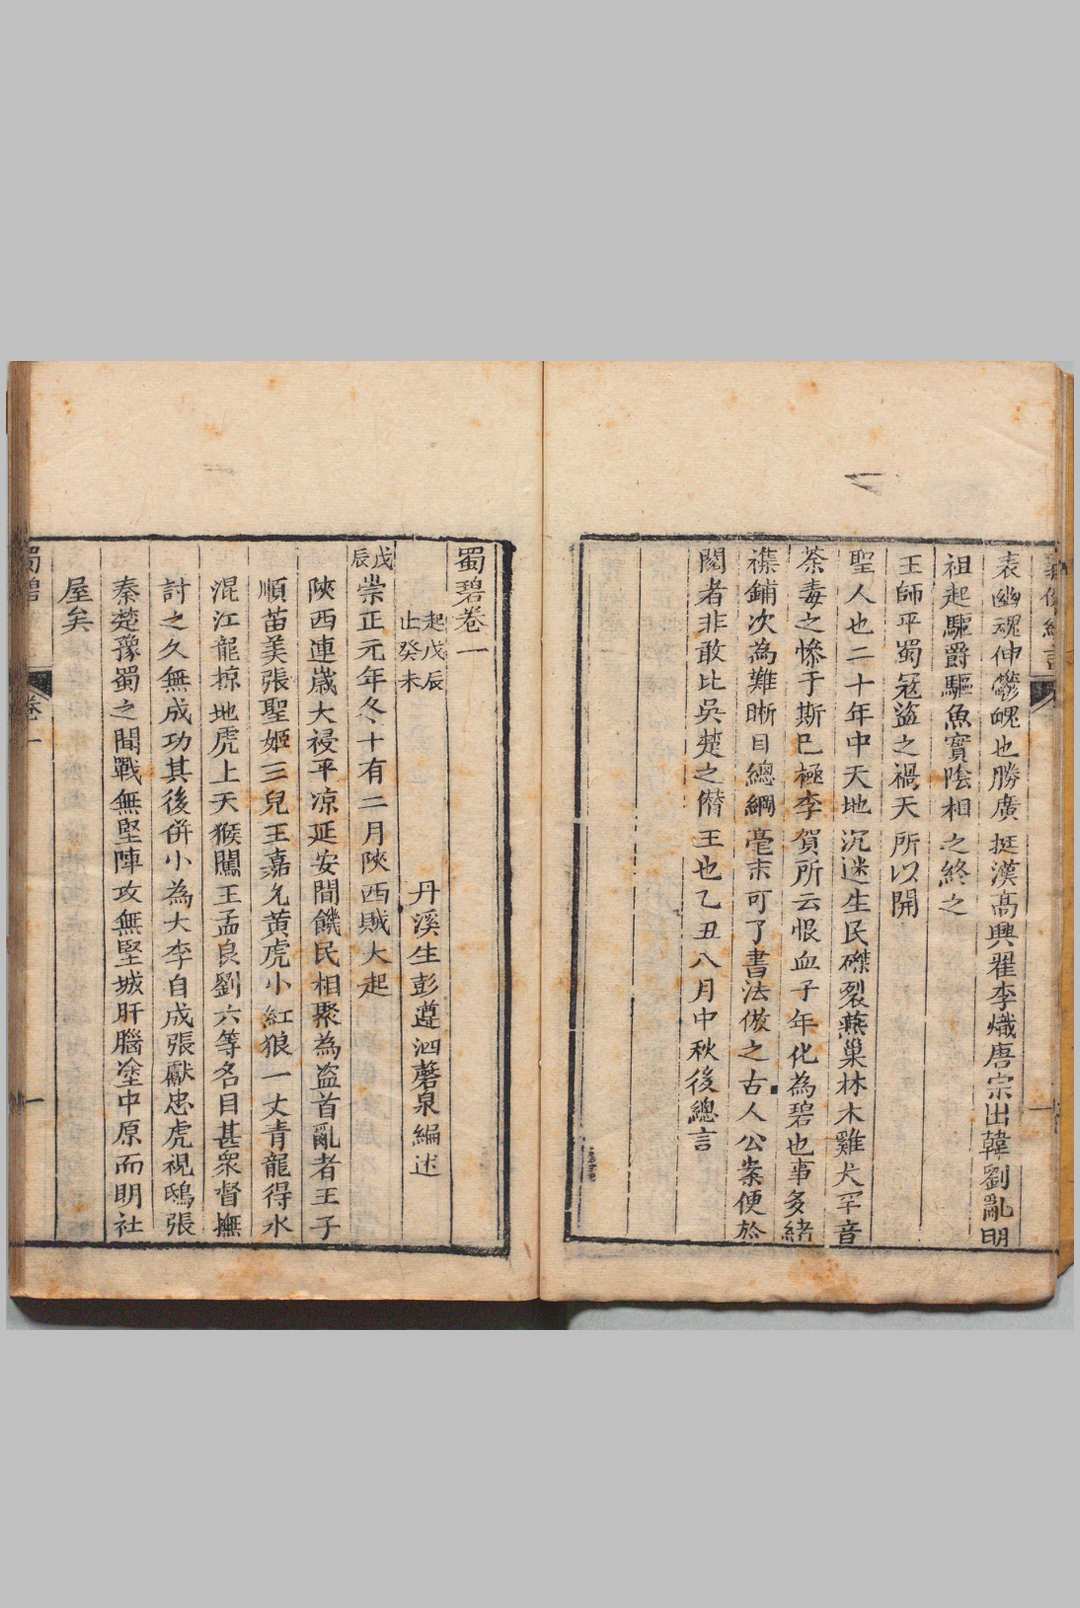 表幽魂伸鬱魄也勝廣挺漢高興翟李熾唐宗出韓劉亂明
祖起驅爵驅魚實陰相之終之
王師平蜀寇盜之禍天所以開
聖人也二十年中天地沉迷生民磔裂燕巢林木雞犬罕音
荼毒之慘于斯已極李賀所云恨血千年化為碧也事多緒
襍鋪次為難晰目總綱毫末可了書法倣之古人公案便於
閱者非敢比吳楚之僭王也乙丑八月中秋後總言
蜀碧卷一
起戊辰
止癸未
丹溪生彭遵泗磬泉編述
戊辰
崇正元年冬十有二月陝西賊大起
陝西連歲大祲平凉延安間饑民相聚為盜首亂者王子
順苗美張聖姬三兒王嘉允黃虎小紅狼一丈青龍得水
混江龍掠地虎上天猴闖王孟良劉六等名目甚眾督撫
討之久無成功其後併小為大李自成張獻忠虎視鴟張
秦楚豫蜀之間戰無堅陣攻無堅城肝腦塗中原而明社
屋矣
蜀碧
卷一
一